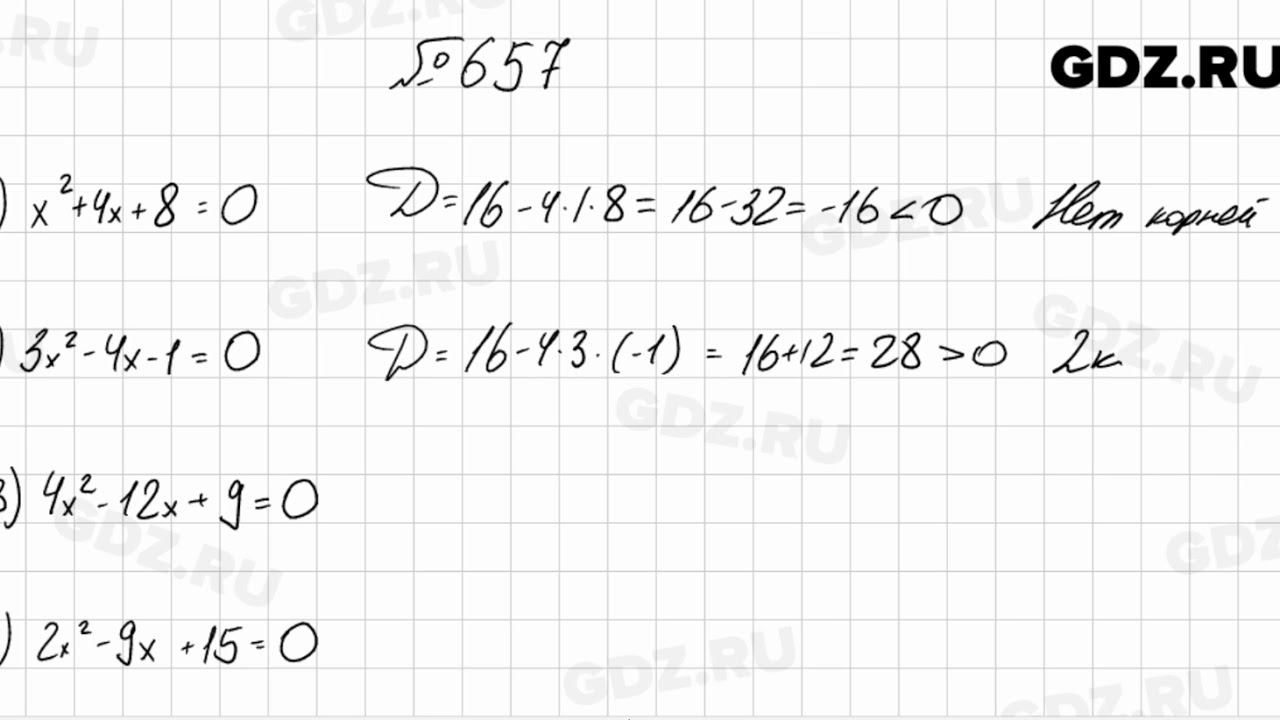 №657
GDZ.RU
) x²+4x+8=0 D=16-4·1·8=16-32=-16<0 Нет корней
) 3x²-4x-1=0 D=16-4·3·(-1)=16+12=28>0 2к
в) 4x²-12x+9=0
) 2x²-9x+15=0